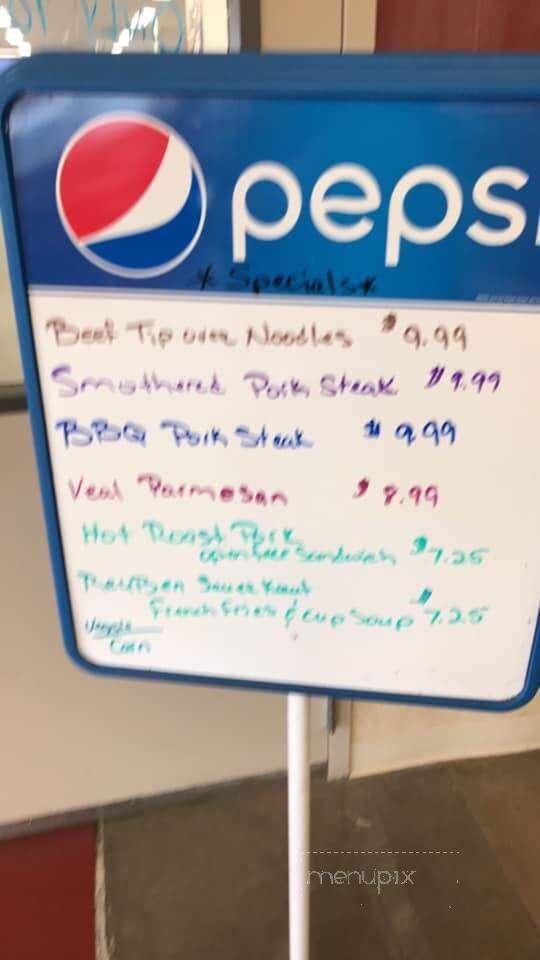 pepsi
* Specials *
Beef Tip over Noodles $9.99
Smothered Pork Steak $9.99
BBQ Pork Steak $9.99
Veal Parmesan $8.99
Hot Roast Pork
open face Sandwich $7.25
Reuben Sauerkraut
French Fries & Cup Soup $7.25
Veggie
Corn
menupix